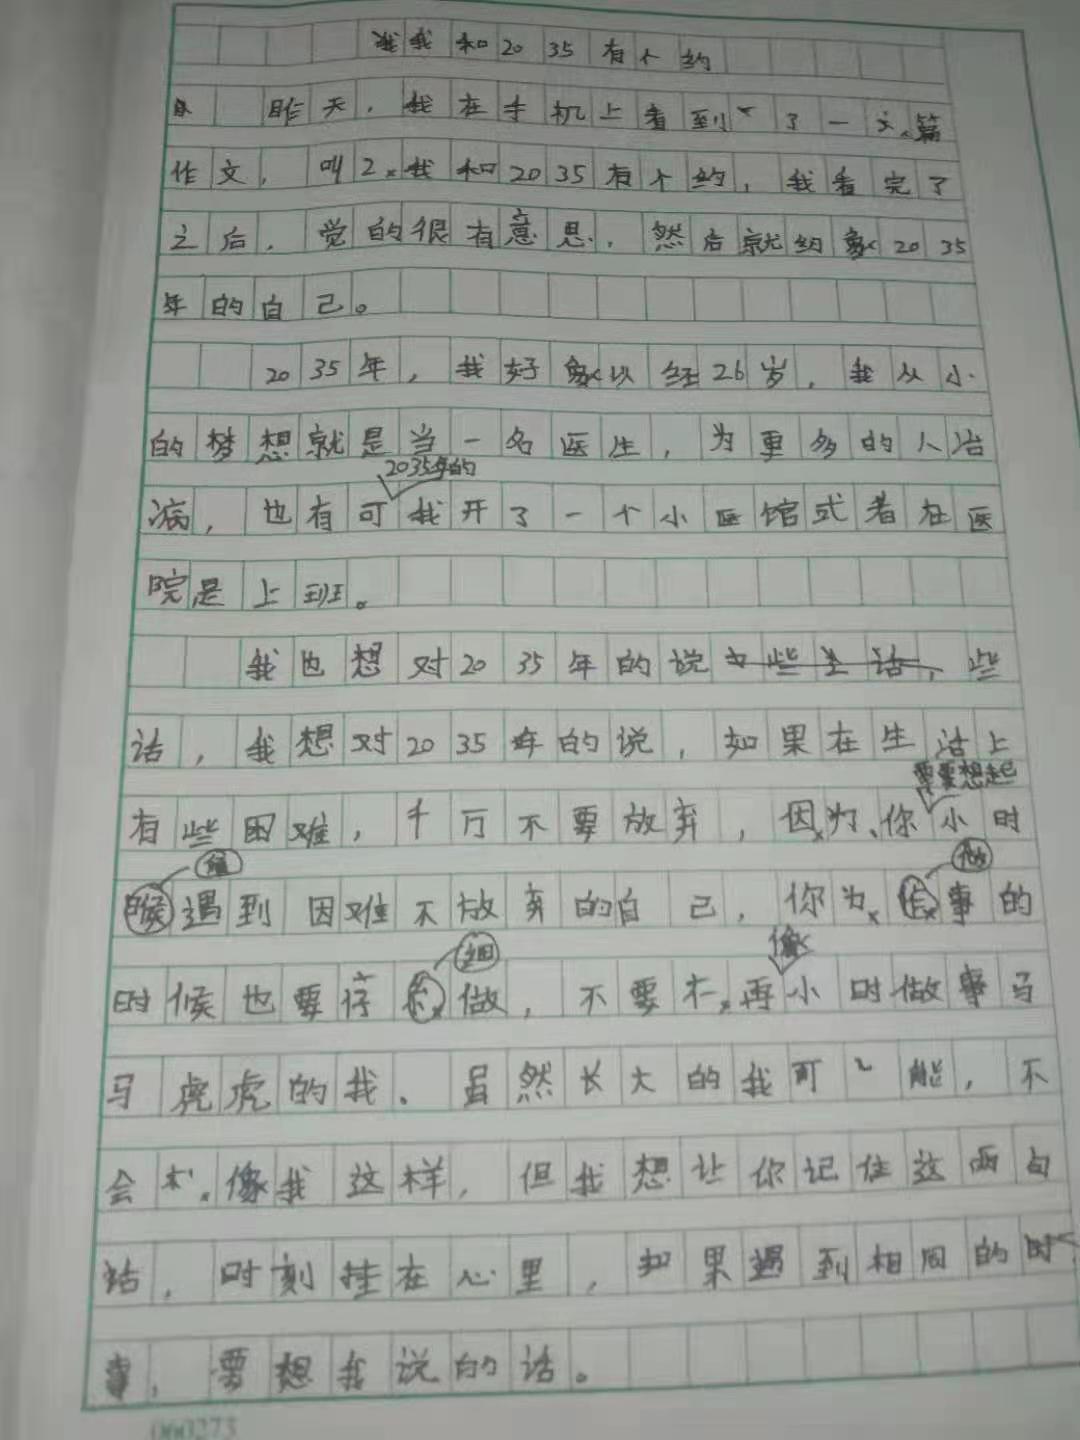 我和2035有个约
昨天，我在手机上看到了一篇
作文，叫我和2035有个约，我看完了
之后，觉的很有意思，然后就约象2035
年的自己。
2035年，我好象以经26岁，我从小
的梦想就是当一名医生，为更多的人治
病，也有可2035年的我开了一个小医馆式者在医
院是上班。
我也想对2035年的说些
话，我想对2035年的说，如果在生活上
有些困难，千万不要放弃，因为你要想起小时
候遇到困难不放弃的自己，你为做事的
时候也要仔细做，不要再像小时做事马
马虎虎的我。虽然长大的我可能，不
会像我这样，但我想让你记住这两句
话，时刻挂在心里，如果遇到相同的时
事，要想我说的话。
060273